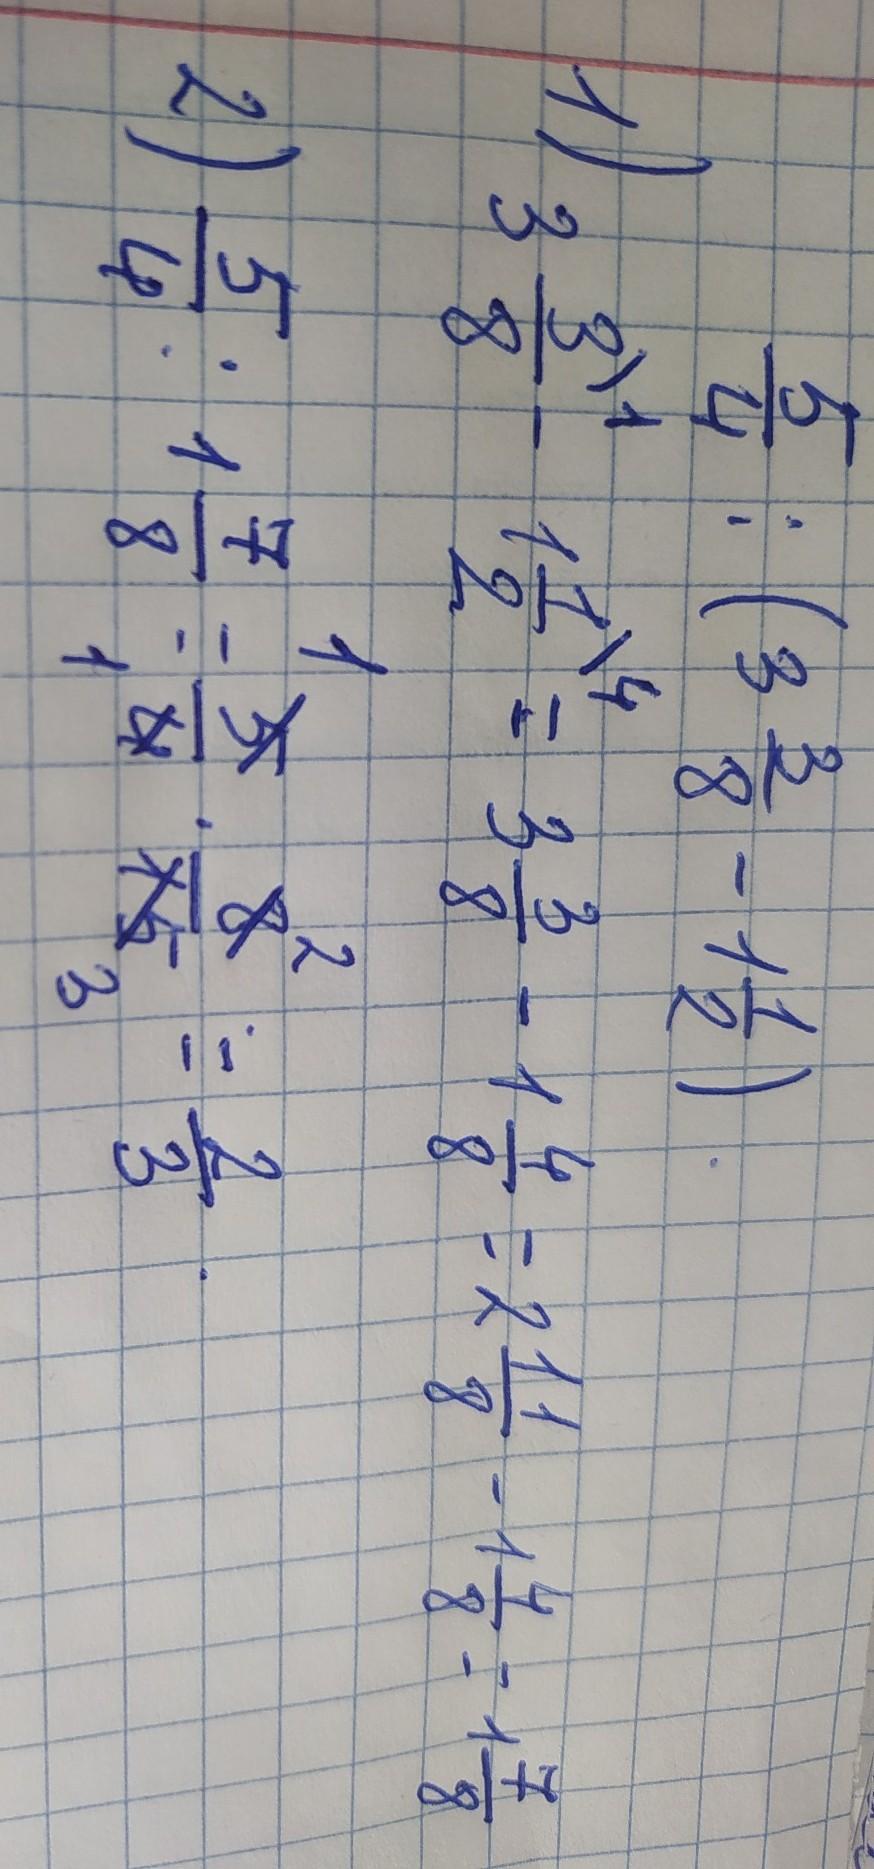 5/4 : (3 3/8 - 1 1/2)
1) 3 3/8 \1 - 1 1/2 \4 = 3 3/8 - 1 4/8 = 2 11/8 - 1 4/8 = 1 7/8
2) 5/4 : 1 7/8 = 5/4 · 8/15 = 2/3 .
1 2
1 3